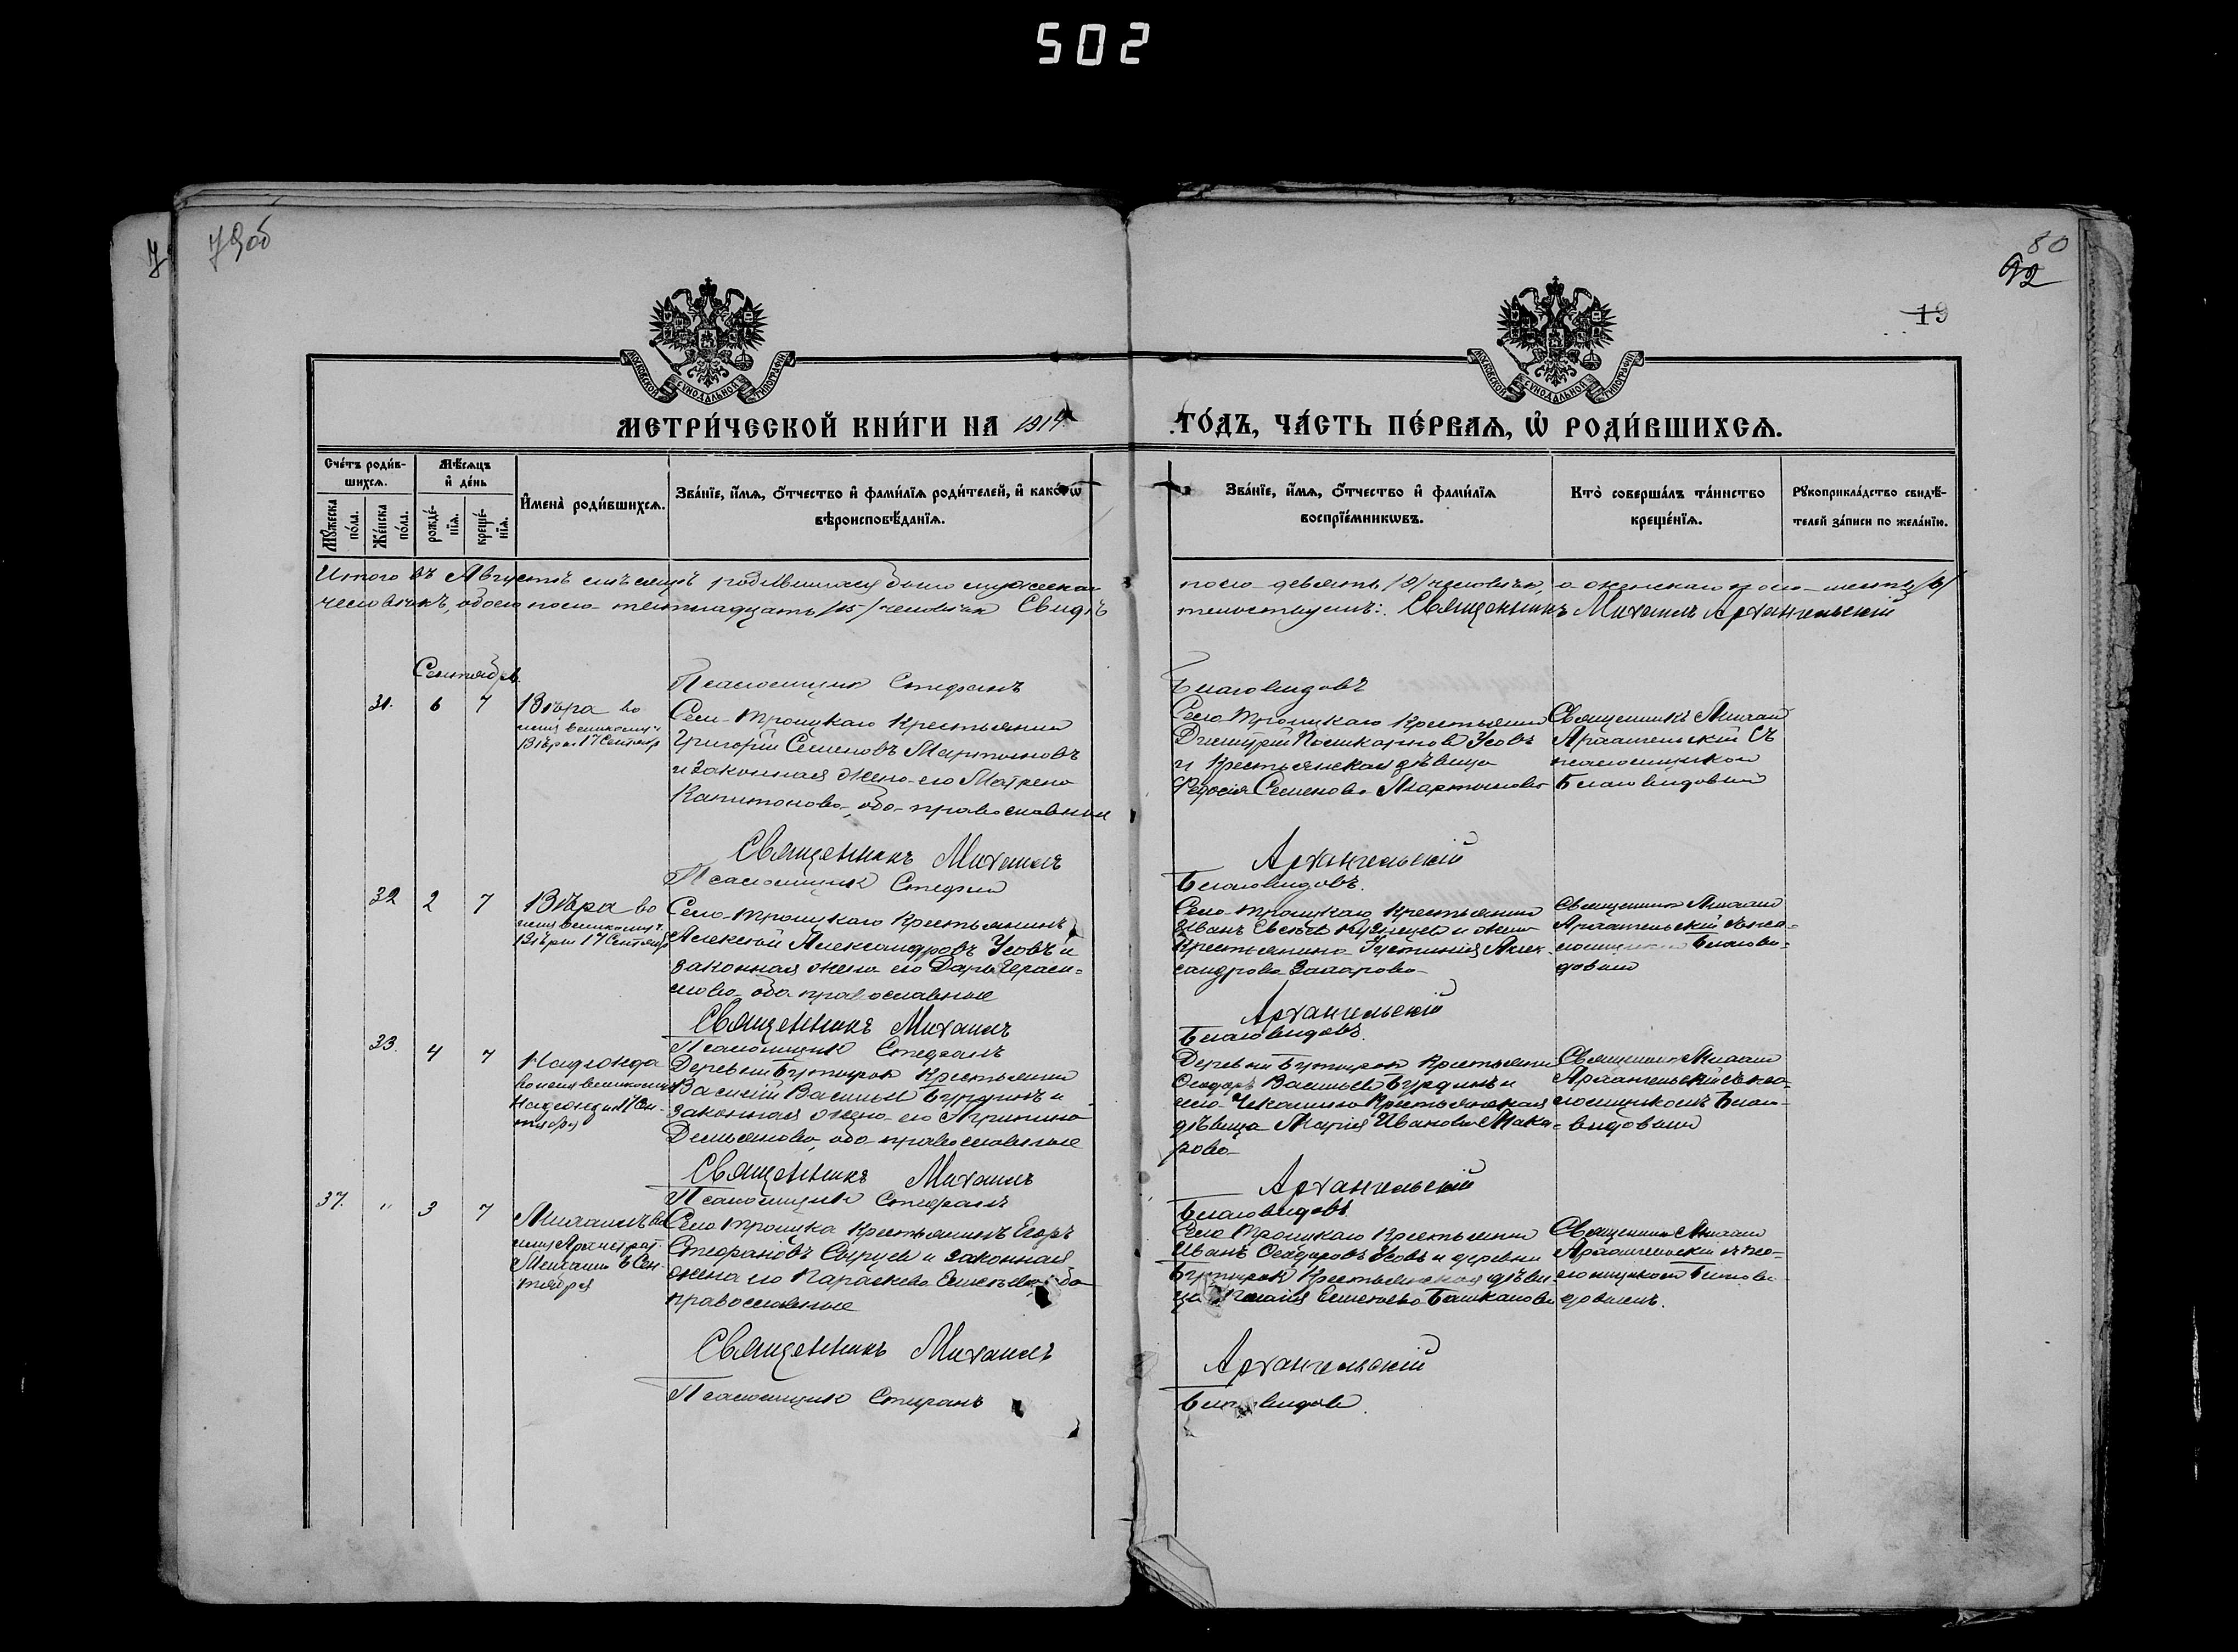 502
79об
80
92
19
МОСКОВСКОЙ СУНОДАЛЬНОЙ ТИПОГРАФІИ
МОСКОВСКОЙ СУНОДАЛЬНОЙ ТИПОГРАФІИ
МЕТРИ́ЧЕСКОЙ КНИ́ГИ НА 1914 ГО́ДЪ, ЧА́СТЬ ПЕ́РВАѦ, Ѡ҆ РОДИ́ВШИХСѦ.
Сче́тъ роди́в-
шихсѧ.
Мѣ́сѧцъ
и҆ де́нь
Мꙋ́жеска
по́ла.
Же́нска
по́ла.
рожде́-
нїѧ.
креще́-
нїѧ.
И҆мена̀ роди́вшихсѧ.
Зва́нїе, и҆́мѧ, ѻ҆́тчество и҆ фами́лїѧ роди́телей, и҆ како́гѡ
вѣроисповѣ́данїѧ.
Зва́нїе, и҆́мѧ, ѻ҆́тчество и҆ фами́лїѧ
воспрїе́мникѡвъ.
Кто̀ соверша́лъ та́инство
креще́нїѧ.
Рꙋкоприкла́дство свидѣ́-
телей за́писи по жела́нїю.
Итого въ Августѣ мѣсяцѣ родившихся было мужскаго пола девять /9/ человѣкъ, а женскаго пола шесть /6/
человѣкъ, обоего пола пятнадцать /15/ человѣкъ Свидѣ
тельствуемъ: Священникъ Михаилъ Архангельскій
Псаломщикъ Стефанъ Благовидовъ
Сентябрь
31. 6 7
Вѣра во
имя великомуч.
Вѣры 17 Сентябр
Села Троицкаго Крестьянинъ
Григорій Семеновъ Мартыновъ
и законная жена его Матрена
Капитонова, оба православные
Села Троицкаго Крестьянинъ
Дмитрій Усовъ
и Крестьянская дѣвица
Федосія Семенова Мартынова
Священникъ Михаил
Архангельскій съ
псаломщикомъ
Благовидовымъ
Священникъ Михаилъ Архангельскій
Псаломщикъ Стефан Благовидовъ.
32 2 7
Вѣра во
имя великомуч.
Вѣры 17 Сентябр
Села Троицкаго Крестьянинъ
Алексѣй Александровъ Усовъ и
законная жена его Дарья Гераси-
мова, оба православные
Села Троицкаго Крестьянинъ
Иванъ и жена
Крестьянина Устинія Алек-
сандрова Захарова
Священникъ Михаил
Архангельскій съ пса-
ломщикомъ Благови-
довымъ
Священникъ Михаилъ Архангельскій
Псаломщикъ Стефанъ Благовидовъ.
33. 4 7
Надежда
во имя великомуч
Надежды 17 Сен-
тября
Деревни Бутырок Крестьянинъ
Василій Васильев Бурдинъ и
законная жена его Агрипина
Демьянова, оба православные
Деревни Бутырок Крестьянинъ
Ѳеодоръ Васильев Бурдинъ и
села Чекашина Крестьянская
дѣвица Марія Иванова Мака-
рова
Священникъ Михаил
Архангельскій съ пса-
ломщикомъ Благо-
видовымъ
Священникъ Михаилъ Архангельскій
Псаломщикъ Стефанъ Благовидовъ.
37. " 3 7
Михаилъ во
имя Архистрат.
Михаила 6 Сен-
тября
Села Троицка Крестьянинъ Егоръ
Стефановъ и законная
жена его Параскева оба
православные
Села Троицкаго Крестьянинъ
Иванъ Ѳеодоровъ Усовъ и деревни
Бутырок Крестьянская дѣви-
ца Башканова
Священникъ Михаил
Архангельскій съ пса-
ломщикомъ Благови-
довымъ.
Священникъ Михаилъ Архангельскій
Псаломщикъ Стефанъ Благовидовъ.